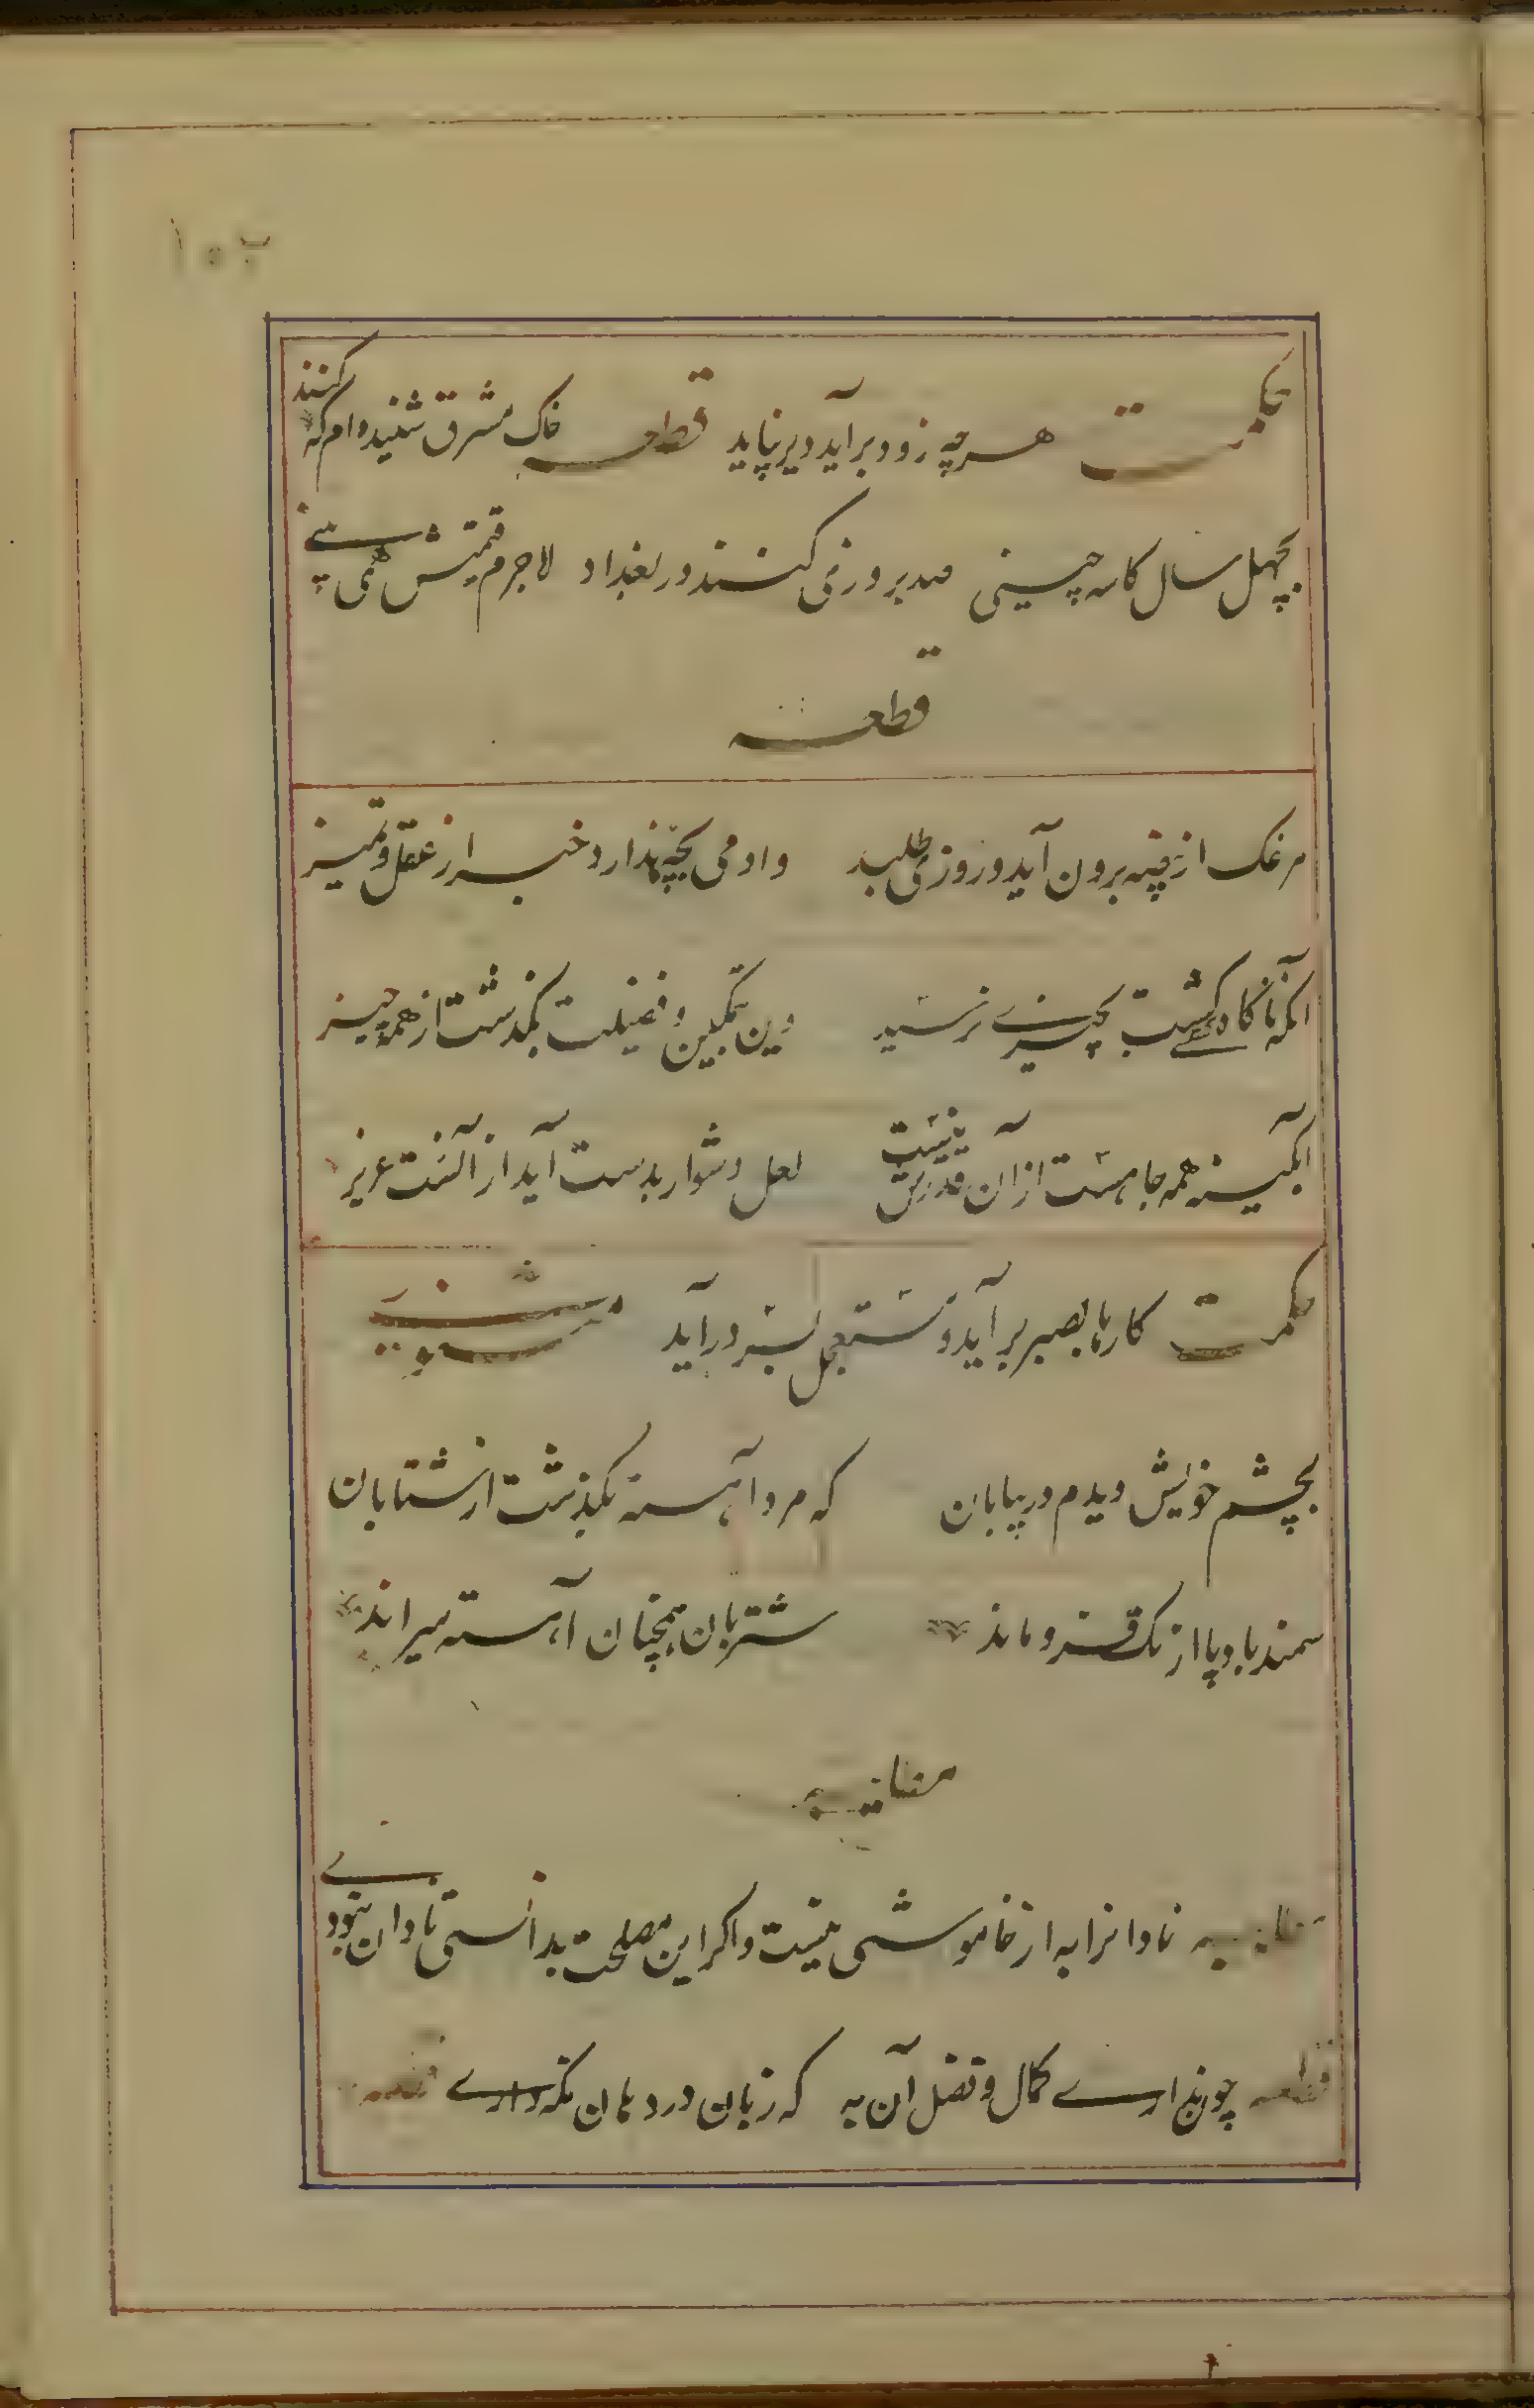 حکمت هرچه زود برآید دیر نپاید قطعه خاک مشرق شنیده ام که کنند
بچهل سال کاسه چینی صد بروزی کنند در بغداد لاجرم قیمتش همی بینی
قطعه
مرغک از بیضه برون آید و روزی طلبد وادمی بچه ندارد خبر از عقل و تمیز
آنکه ناگاه کسی گشت بچیزی نرسید وین بتمکین و فضیلت بگذشت از همه چیز
آبگینه همه جا هست از آن قدرش نیست لعل دشوار بدست آید از آنست عزیز
حکمت کارها بصبر برآید و مستعجل بسر درآید مثنوی
بچشم خویش دیدم در بیابان که مرد آهسته بگذشت از شتابان
سمند باد پا از تک فرو ماند شتربان همچنان آهسته میراند
نادانرا به از خاموشی نیست و اگر این مصلحت بدانستی نادان نبودی
قطعه چون نداری کمال و فضل آن به که زبان در دهان نگه داری